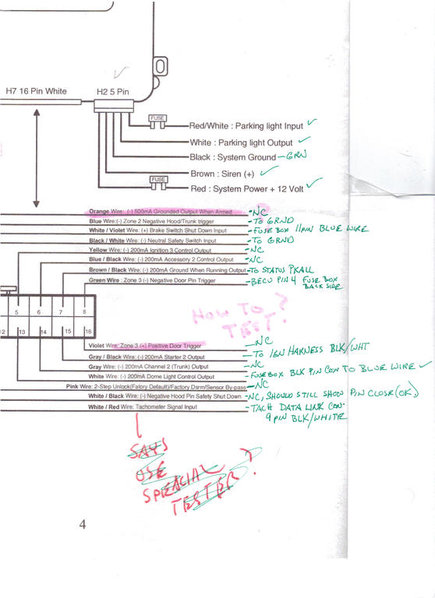 H7 16 Pin White
H2 5 Pin
FUSE
Red/White : Parking light Input
White : Parking light Output
Black : System Ground GRN
Brown : Siren (+)
FUSE
Red : System Power + 12 Volt
Orange Wire: (-) 500mA Grounded Output When Armed NC
Blue Wire:(-) Zone 2 Negative Hood/Trunk trigger TO GRND
White / Violet Wire: (+) Brake Switch Shut Down Input FUSE BOX 11 PIN BLUE WIRE
Black / White Wire: (-) Neutral Safety Switch Input TO GRND
Yellow Wire: (-) 200mA Ignition 3 Control Output NC
Blue / Black Wire: (-) 200mA Accessory 2 Control Output NC
Brown / Black Wire: (-) 200mA Ground When Running Output TO STATUS PKALL
Green Wire: Zone 3 (-) Negative Door Pin Trigger BECU PIN 4 FUSE BOX
BACK SIDE
5 6 7 8
HOW TO
TEST?
12 13 14 15 16
Violet Wire: Zone 3 (+) Positive Door Trigger NC
Gray / Black Wire:(-) 200mA Starter 2 Output TO IGN HARNESS BLK/WHT
Gray Wire: (-) 200mA Channel 2 (Trunk) Output NC
White Wire: (-) 200mA Dome Light Control Output FUSE BOX BLK PIN CON TO BLUE WIRE
Pink Wire: 2-Step Unlock(Fatory Default)/Factory Dsrm/Sensor By-pass NC
White / Black Wire: (-) Negative Hood Pin Safety Shut Down NC, SHOULD STILL SHOW PIN CLOSE (OK)
White / Red Wire: Tachometer Signal Input TACH DATA LINK CON
9 PIN BLK/WHITE
SAYS
USE
SPEACIAL
TESTER?
4